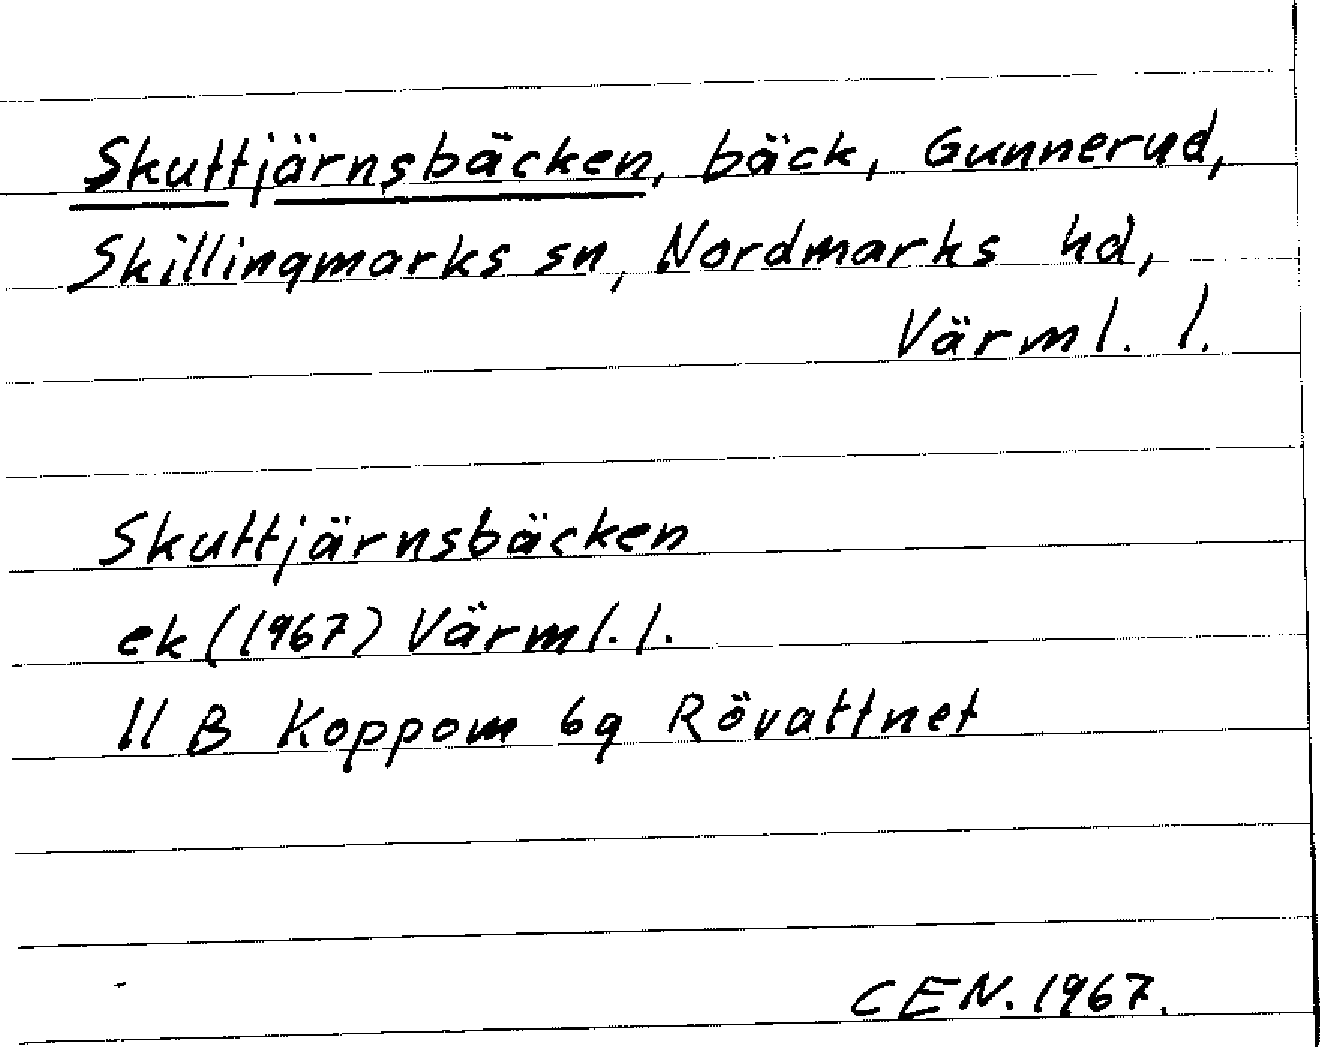 Skuttjärnsbäcken, bäck, Gunnerud,
Skillingmarks sn, Nordmarks hd,
Värml. l.
Skuttjärnsbäcken
ek (1967) Värml. l.
11 B Koppom 6g Rövattnet
CEN. 1967.